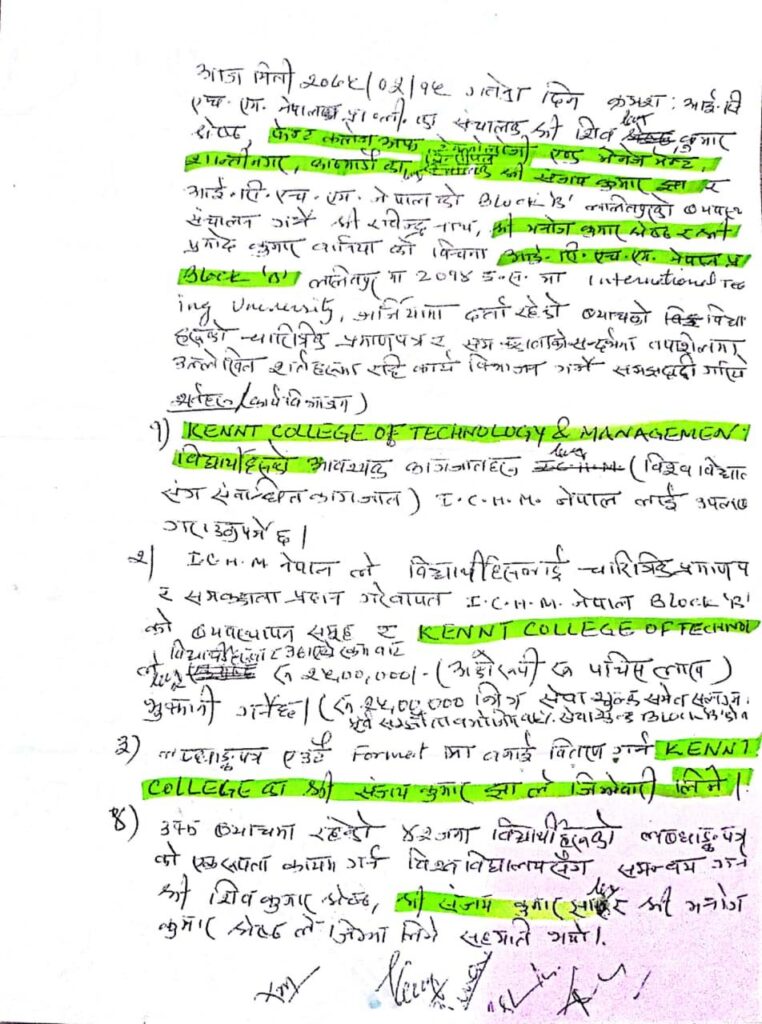 आज मिति २०७५/०२/१५ गतेका दिन क्रमश: आई.सि
एच.एम. नेपालका प्रा.ली. का संचालक श्री शिव कुमार
श्रेष्ठ, केन्ट कलेज अफ टेक्नोलोजी एण्ड मेनेजमेन्ट,
शान्तीनगर, काठमाडौं का श्री संजय कुमार झा र
आई.सि.एच.एम. नेपालको BLOCK 'B' ललितपुरको व्यवस्था
संचालन गर्ने श्री रविन्द्र श्री मनोज कुमार श्रेष्ठ र श्री
प्रमोद कुमार को विचमा आई.सि.एच.एम. नेपाल
BLOCK 'B' ललितपुर मा 2014 इ.स. मा International
ing University, जर्जियामा दर्ता रहेको व्याचको विद्या
हरुको चारित्रिक प्रमाणपत्र र सन्दर्भमा तपशिलमा
उल्लेखित शर्तहरुमा रहि कार्य विभाजन गर्ने समझदारी गरियो
शर्तहरु/(कार्य विभाजन)
१) KENNT COLLEGE OF TECHNOLOGY & MANAGEMENT
विद्यार्थीहरुको आवश्यक कागजातहरु (विश्व विद्यालय
संग संवन्धित कागजात) I.C.H.M. नेपाल लाई उपलब्ध
गराउनुपर्ने छ।
२) I.C.H.M नेपाल ले विद्यार्थीहरुलाई चारित्रिक प्रमाणप
र समकक्षता प्रदान गरेवापत I.C.H.M. नेपाल BLOCK 'B'
को व्यवस्थापन समूह र KENNT COLLEGE OF TECHNOL
विद्यार्थीहरु
ले रु २५,००,०००/- (अक्षेरुपी रु पच्चिस लाख)
भुक्तानी गर्नेछन्। (रु २५,००,००० भित्र सेवा शुल्क समेत
पूर्व सम्झौता सेवा शुल्क BLOCK 'B'
३) लब्धाङ्कपत्र एउटै Format मा वनाई वितरण गर्न KENNT
COLLEGE का श्री संजय कुमार झा ले जिम्मेवारी लिने।
४) व्याचमा रहेको ४२ जना विद्यार्थीहरुको लब्धाङ्कपत्र
को एकरुपता कायम गर्न विश्व विद्यालयसँग समन्वय गर्न
श्री शिव कुमार श्रेष्ठ, श्री संजय कुमार र श्री मनोज
कुमार श्रेष्ठ ले जिम्मा लिने सहमति गर्यो।